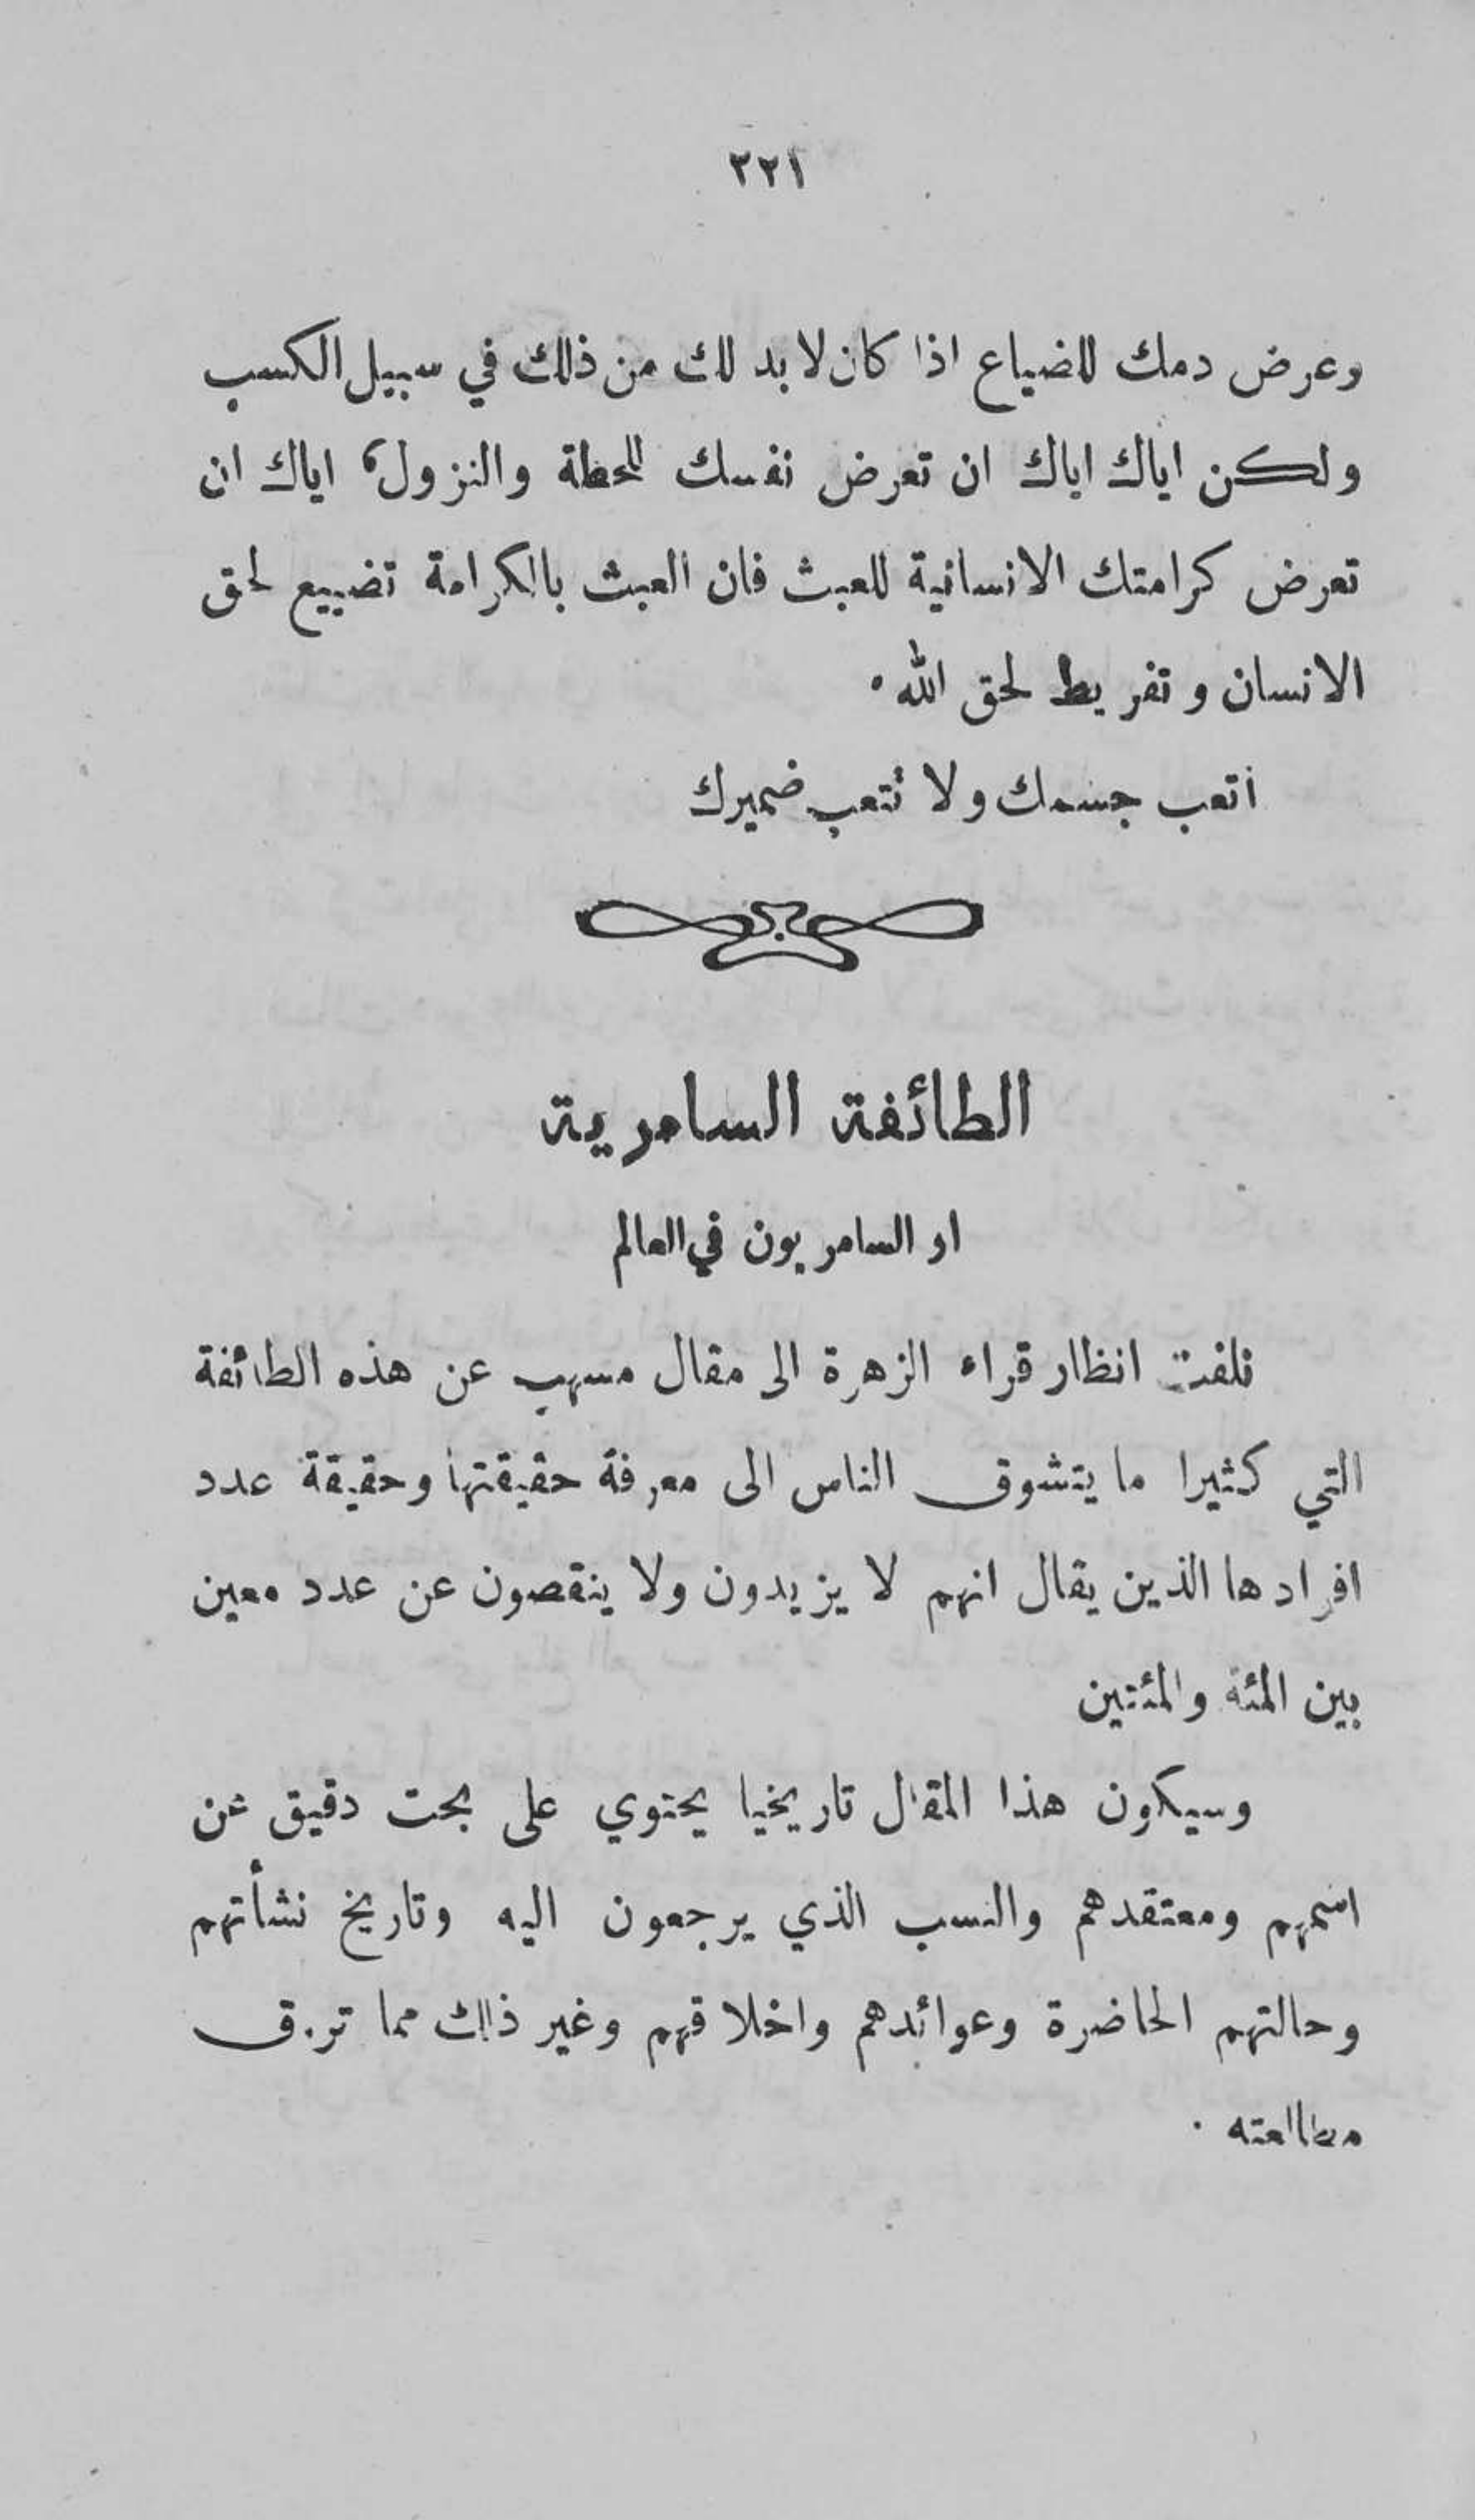 ٢٢١
وعرض دمك للضياع اذا كان لا بد لك من ذلك في سبيل الكسب
ولكن اياك اياك ان تعرض نفسك للحطة والنزول، اياك ان
تعرض كرامتك الانسانية للعبث فان العبث بالكرامة تضييع لحق
الانسان وتفريط لحق الله.
أتعب جسمك ولا تتعب ضميرك
الطائفة السامرية
او السامريون في العالم
نلفت انظار قراء الزهرة الى مقال مسهب عن هذه الطائفة
التي كثيرا ما يتشوق الناس الى معرفة حقيقتها وحقيقة عدد
افرادها الذين يقال انهم لا يزيدون ولا ينقصون عن عدد معين
بين المئة والمئتين
وسيكون هذا المقال تاريخيا يحتوي على بحث دقيق عن
اسمهم ومعتقدهم والنسب الذي يرجعون اليه وتاريخ نشأتهم
وحالتهم الحاضرة وعوائدهم واخلاقهم وغير ذلك مما تروق
مطالعته.